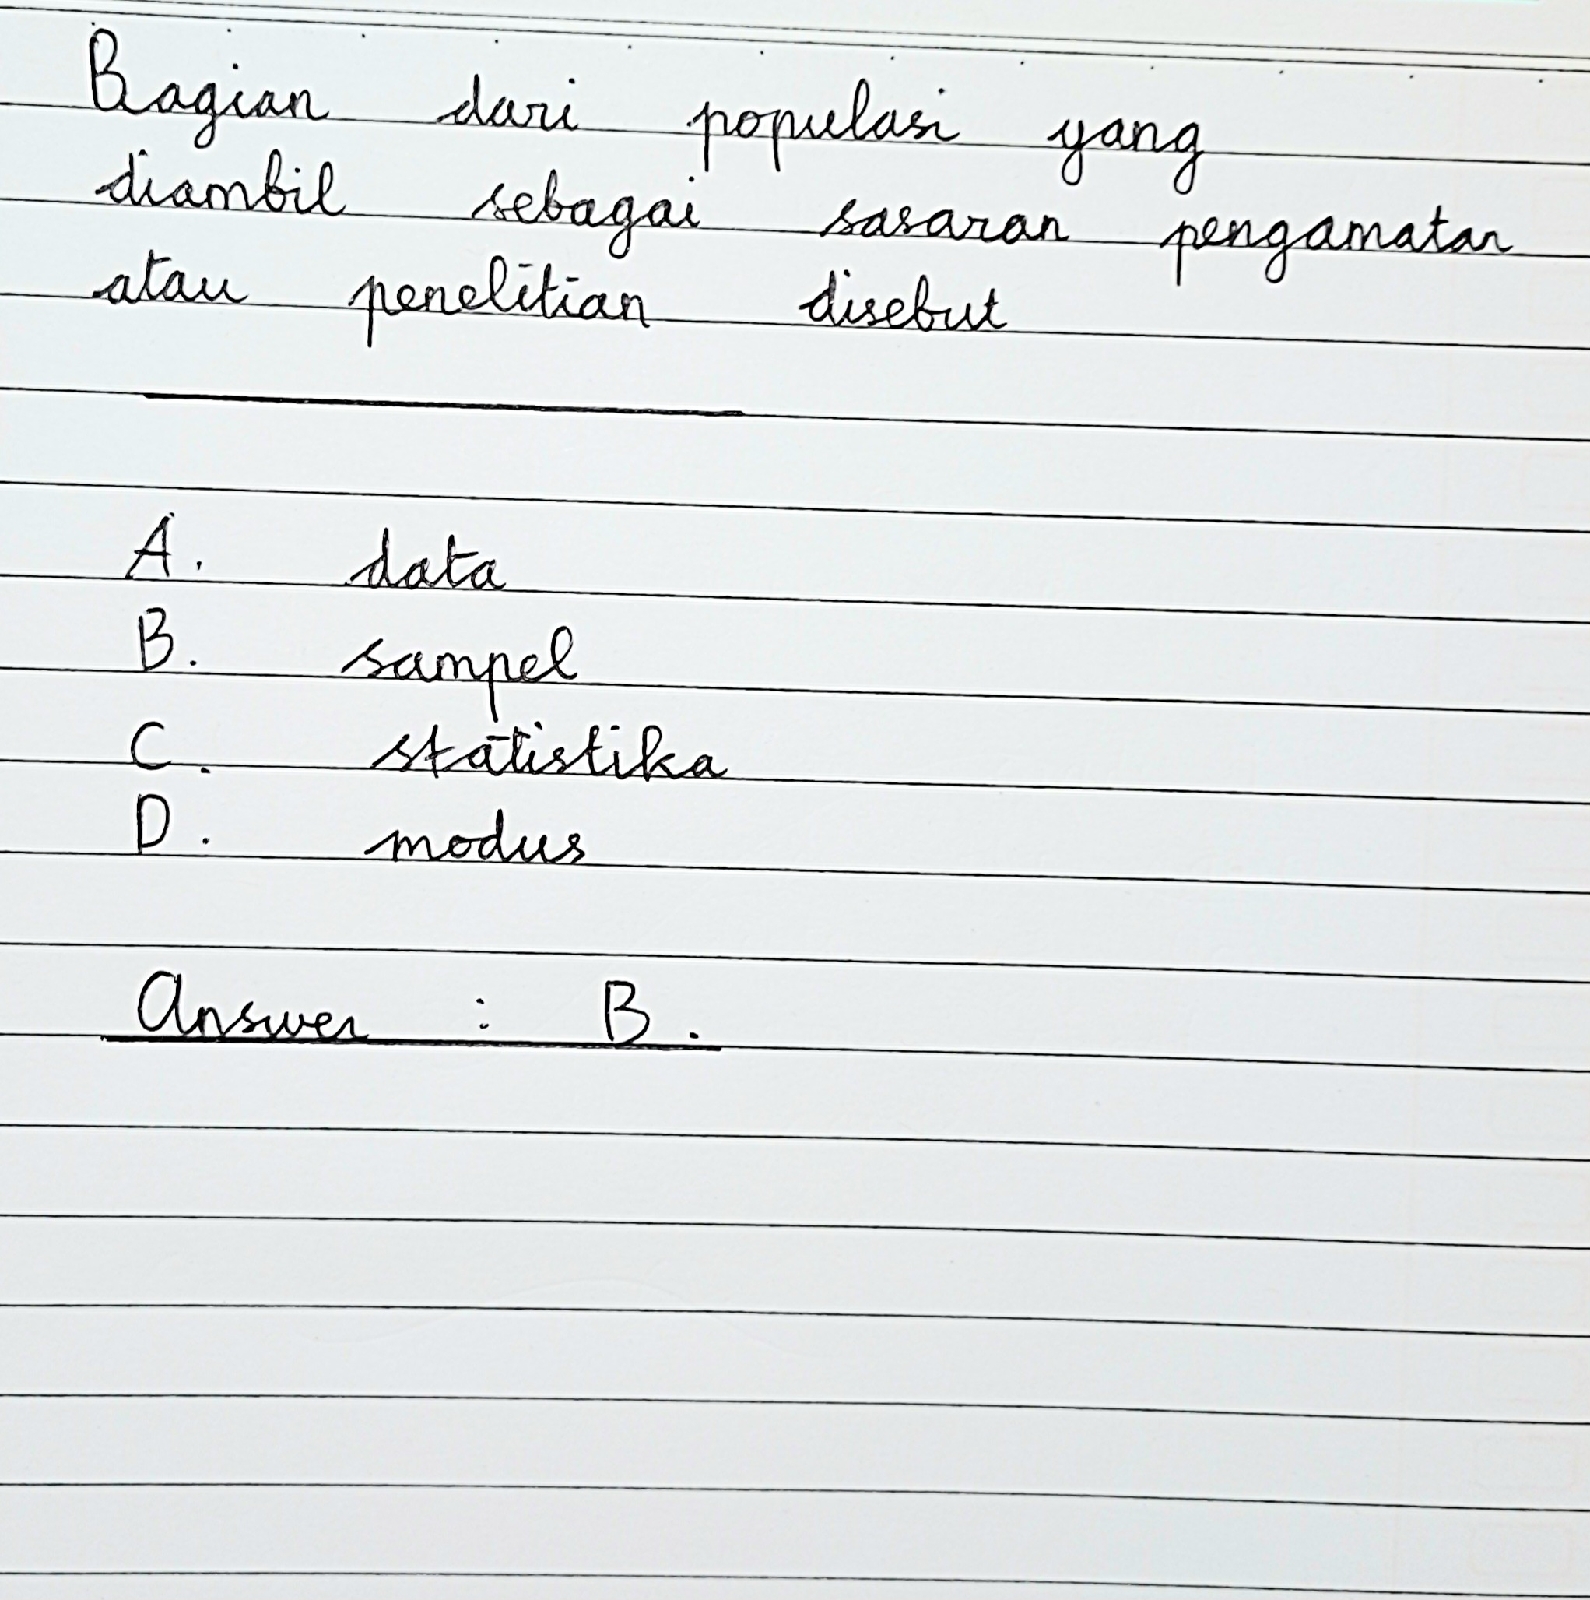 Bagian dari populasi yang
diambil sebagai sasaran pengamatan
atau penelitian disebut
A. data
B. sampel
C. statistika
D. modus
Answer : B.